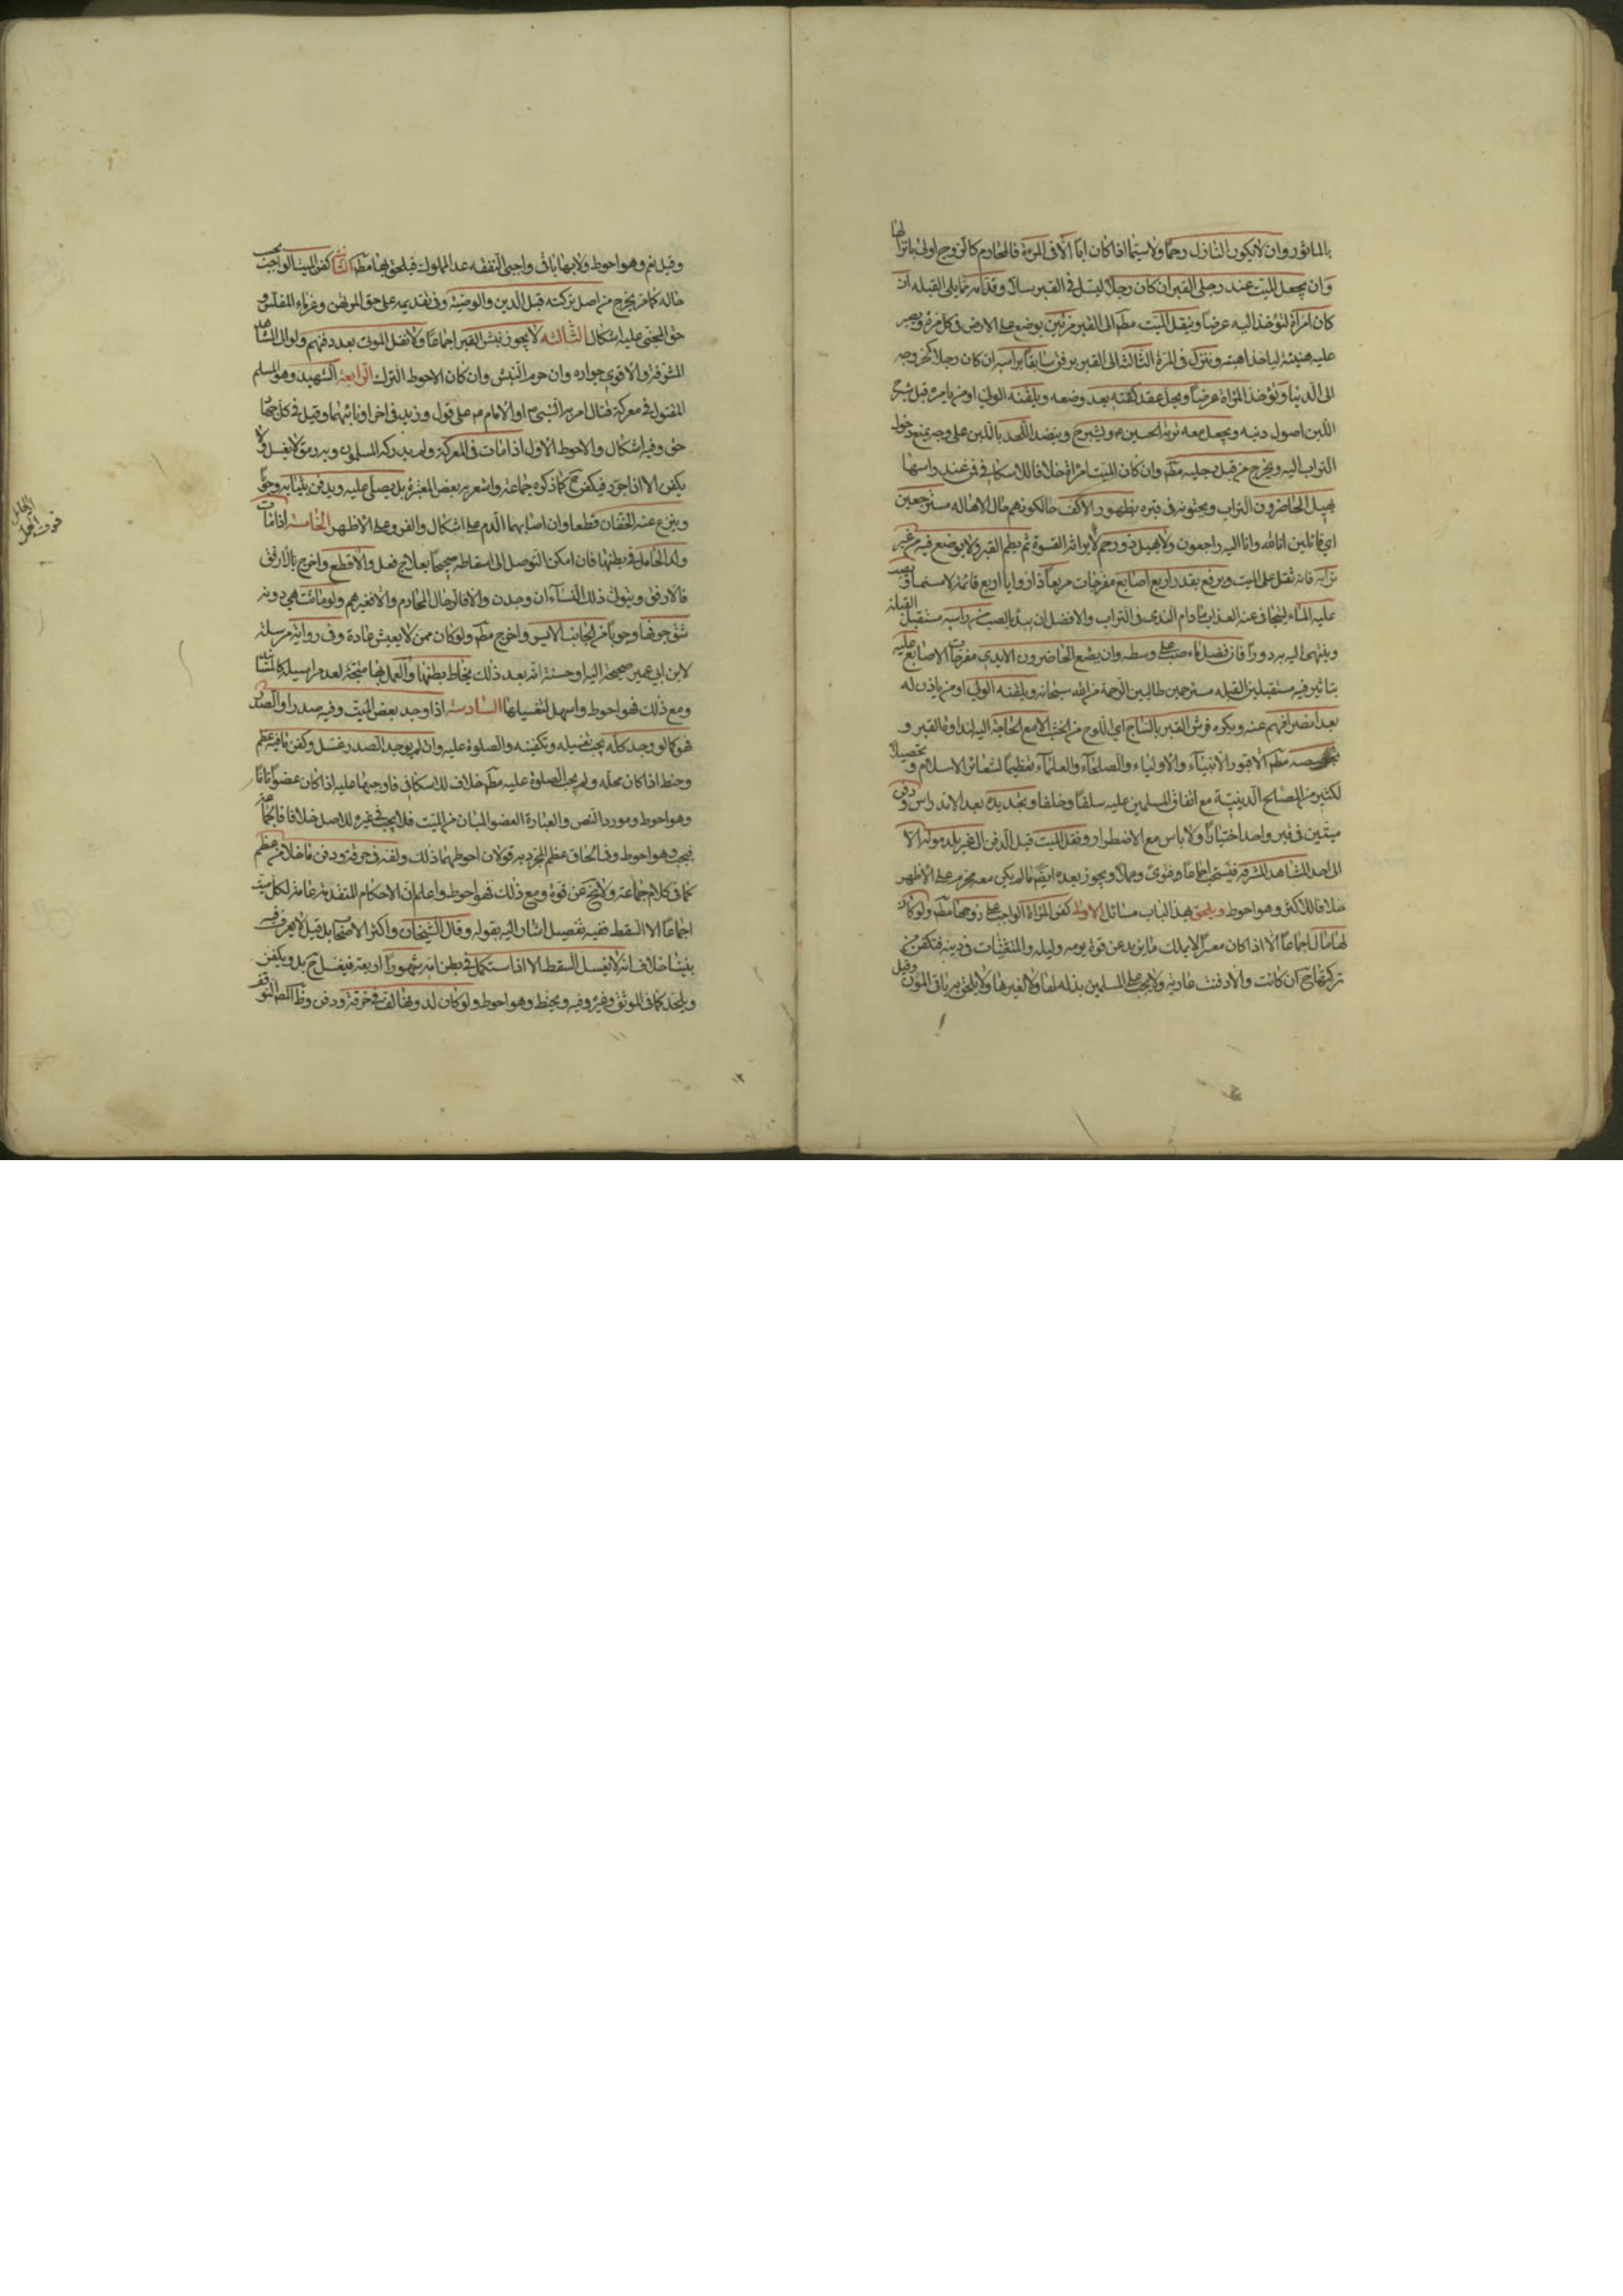 بالماثور وان لا يكون النازل رحما ولا سيما اذا كان ابا الا في المرءة فالمحارم كالزوج اولى بانزالها
وان يجعل الميت عند رجلي القبر ان كان رجلا ليسل في القبر سلا وقدامه مما يلي القبله ان
كان امراة لتؤخذ اليه عرضا وينقل الميت مطم الى القبر مرتين يوضع على الارض في كل مرة ويصبر
عليه هنيئة لياخذ اهبته وينزل في المرة الثالثة الى القبر برفق سابقا براسه ان كان رجلا كخروجه
الى الدنيا وتؤخذ المراة عرضا ويحل عقد كفنه بعد وضعه ويلقنه الولي او من يامره قبل شرج
اللبن اصول دينه ويجعل معه تربة الحسين ع ويشرج وينضد اللحد باللبن على وجه يمنع دخول
التراب اليه ويخرج من قبل رجليه مطم وان كان الميت امراة خلافا للاسكافي فمن عند راسها
يهيل الحاضرون التراب ويحثونه في قبره بظهور الاكف حالكونهم حال الاهاله مسترجعين
اي قائلين انا لله وانا اليه راجعون ولا يهيل ذو رحم لايراثه القسوة ثم يطم القبر ولا يوضع فيه من غير
ترابه فانه ثقل على الميت ويرفع بقدر اربع اصابع مفرجات مربعا ذا زوايا اربع قائمة لا مسنما ويصب
عليه الماء ليتجافى عنه العذاب مادام الندى في التراب والافضل ان يبدء بالصب من راسه مستقبل القبلة
وينتهي اليه بردورا فان فضل ماء صب على وسطه وان يضع الحاضرون الايدي مفرجات الاصابع عليه
بتاثير فيه مستقبلين القبله مسترحمين طالبين الرحمة من الله سبحانه ويلقنه الولي او من ياذن له
بعد انصرافهم عنه ويكره فرش القبر بالساج اي اللوح من الخشب الا مع الحاجة اليه لنداوة القبر و
تجصيصه مطم الا قبور الانبياء والاولياء والصلحاء والعلماء تعظيما لشعائر الاسلام وتحصيلا
لكثير من المصالح الدينية مع اتفاق المسلمين عليه سلفا وخلفا وتجديده بعد الاندراس ودفن
ميتين في قبر واحد اختيارا ولا باس مع الاضطرار ونقل الميت قبل الدفن الى غير بلد موته الا
الى احد المشاهد المشرفة فيستحب اجماعا وفتوى وعملا ويجوز بعده ايضا ما لم يكن معه محرم على الاظهر
خلافا للاكثر وهو احوط ويلحق بهذا الباب مسائل الاولى كفن المراة الواجب على زوجها مطم ولو كان
لها مال اجماعا الا اذا كان معسرا لا يملك ما يزيد عن قوت يومه وليله والمستثنيات في دينه فتكفن من
تركتها ح ان كانت والا دفنت عارية ولا يجب على المسلمين بذله لها ولا لغيرها ولا يلحق به باقي المؤن وقيل
وقيل نعم وهو احوط ولا بها باقي واجبي النفقه عدا المملوك فيلحق بها مطم الثانية كفن الميت الواجب يجب
حاله كما مر يخرج من اصل تركته قبل الدين والوصية وفي تقديمه على حق المرتهن وغرماء المفلس و
حق المجني عليه اشكال الثالثة لا يجوز نبش القبر اجماعا ولا نقل الموتى بعد دفنهم ولو الى المشاهد
المشرفة والاقوى جوازه وان حرم النبش وان كان الاحوط الترك الرابعة الشهيد وهو المسلم
المقتول في معركة قتال امر به النبي ص او الامام ع على قول وزيد في اخر او نائبهما وقيل في كل جهاد
حق وفيه اشكال والاحوط الاول اذا مات في المعركة ولم يدركه المسلمون وبه رمق لا يغسل ولا
يكفن الا اذا جرد فيكفن ح كما ذكره جماعة واشعر به بعض المعتبرة بل يصلى عليه ويدفن بثيابه وجوبا
وينزع عنه الخفان قطعا وان اصابهما الدم على اشكال والفرو على الاظهر الخامسة اذا مات
ولد الحامل في بطنها فان امكن التوصل الى اسقاطه صحيحا بعلاج فعل والا قطع واخرج بالارفق
فالارفق ويتولى ذلك النساء ان وجدن والا فالرجال المحارم والا فغيرهم ولو ماتت هي دونه
شق جوفها وجوبا من الجانب الايسر واخرج مطم ولو كان ممن لا يعيش عادة وفي رواية مرسلة
لابن ابي عمير صحيحة اليه او حسنة انه بعد ذلك يخاط بطنها والعمل بها متجه لعد مراسيله كالمسانيد
ومع ذلك فهو احوط واسهل لتغسيلها السادسة اذا وجد بعض الميت وفيه صدر او الصدر
فهو كما لو وجد كله يجب تغسيله وتكفينه والصلوة عليه وان لم يوجد الصدر غسل وكفن ما فيه عظم
وحنط اذا كان محله ولم يجب الصلوة عليه مطم خلاف للاسكافي فاوجبها عليه اذا كان عضوا تاما
وهو احوط ومورد النص والعبارة العضو المبان من الميت فلا يجب في غيره للاصل خلافا فالجماعة
فيجب وهو احوط وفي الحاق عظم المجرد به قولان احوطهما ذلك ولف في خرقة ودفن ما خلا من عظم
كما في كلام جماعة ولا يخ عن قوة ومع ذلك فهو احوط واعلم ان الاحكام المتقدمة عامة لكل ميت
اجماعا الا السقط ففيه تفصيل اشار اليه بقوله وقال الشيخان واكثر الاصحاب بل قيل لا يعرف فيه
بيننا خلاف انه لا يغسل السقط الا اذا استكمل في بطن امه شهورا اربعة فيغسل ح بل ويكفن
ويلحد كما في الموثق وغيره وفيه ويحنط وهو احوط ولو كان لدونها لف في خرقة ودفن وظاهر المص التوقف